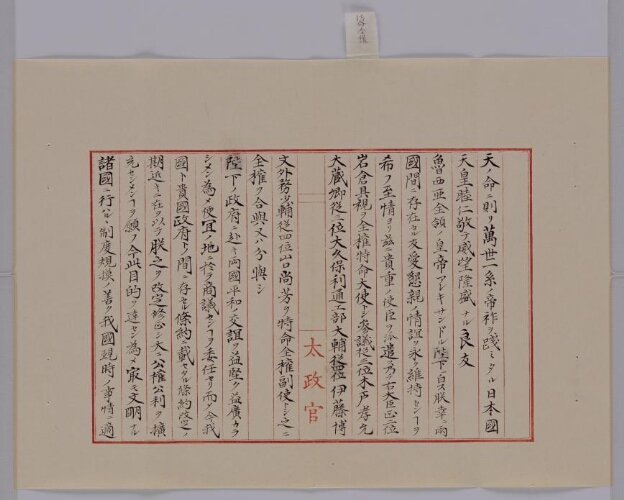 天命ニ則リ萬世一系ノ帝祚ヲ踐ミタル日本國
天皇睦仁敬テ威望隆盛ナル良友
魯西亜全領ノ皇帝アレキサンドル陛下ニ白ス朕幸ニ兩
國間ニ存在セル友愛懇親ノ情誼ヲ永ク維持センコトヲ
希フ至情ヨリ茲ニ貴重ノ使臣ヲ派遣シ乃チ右大臣正二位
岩倉具視ヲ全權特命大使トシ參議從三位木戸孝允
大藏卿從三位大久保利通工部大輔從四位伊藤博
文外務少輔從四位山口尚芳ヲ特命全權副使トシ之ニ
全權ヲ合與又ハ分與シ
陛下ノ政府ニ赴キ両國平和ノ交誼ヲ益堅ク益廣カラ
シメン為メ便宜ノ地ニ於テ商議センコヲ委任セリ而メ今我
國ト貴國政府トノ間ニ存セル條約ニ載セタル條約改定ノ
期近キニ在ルヲ以テ朕之ヲ改定修正シ大ニ公權公利ヲ擴
充センコヲ願フ今此目的ヲ達セン為メ最モ文明ナル
諸國ニ行ルヽ制度規模ノ善ク我國現時ノ事情ニ適
太政官